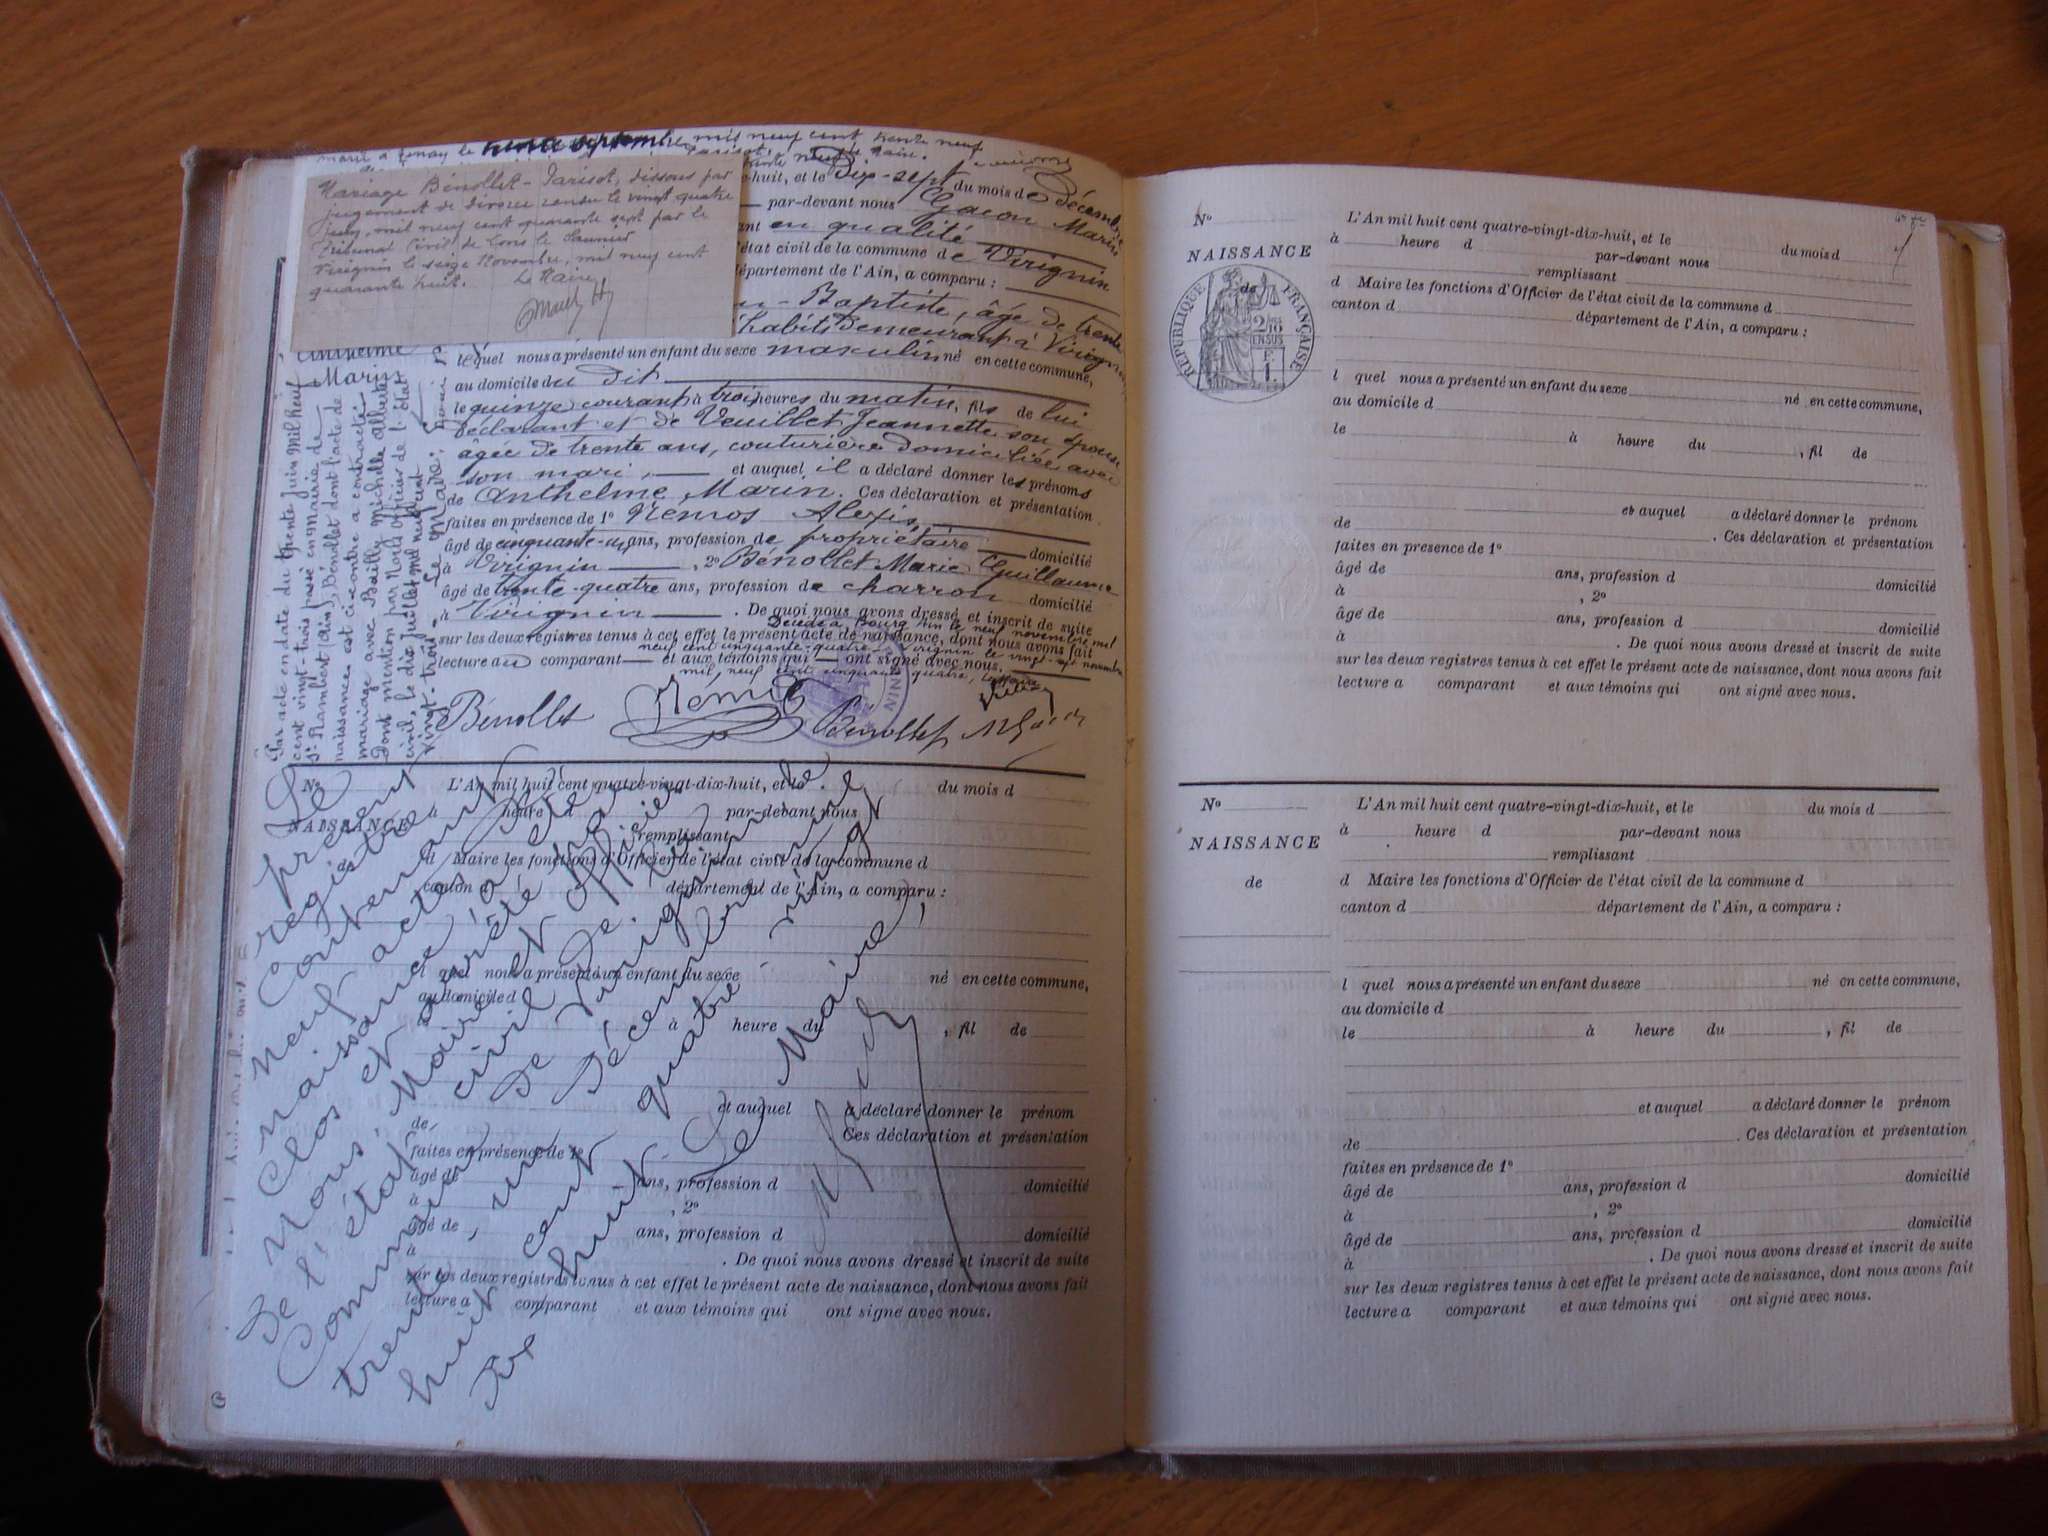 marié à Tenay le trente septembre mil neuf cent trente neuf
Parisot.
trente neuf le Maire.
Mariage Bénollet-Parisot, dissous par
jugement de divorce rendu le vingt quatre
juin, mil neuf cent quarante sept par le
Tribunal Civil de Lons le Saunier
Virignin le seize Novembre, mil neuf cent
quarante huit. Le Maire
-huit, et le Dix-sept du mois de décembre
par-devant nous Gacon Marin
en qualité
état civil de la commune de Virignin
département de l'Ain, a comparu :
-Baptiste, âgé de trente
habits demeurant à Virignin
lequel nous a présenté un enfant du sexe masculin né en cette commune,
au domicile du dit
le quinze courant à trois heures du matin, fils de lui
déclarant et de Veuillet Jeannette son épouse
âgée de trente ans, couturière domiciliée avec
son mari, et auquel il a déclaré donner les prénoms
de Anthelme Marin. Ces déclaration et présentation
faites en présence de 1° Alexis,
âgé de cinquante-un ans, profession de propriétaire domicilié
à Virignin, 2° Bénollet Marie Guillaume
âgé de trente-quatre ans, profession de charron domicilié
à Virignin. De quoi nous avons dressé et inscrit de suite
sur les deux registres tenus à cet effet le présent acte de naissance, dont nous avons fait
lecture au comparant et aux témoins qui ont signé avec nous.
Décédé à Bourg Ain le neuf novembre mil
neuf cent cinquante-quatre. Virignin le vingt novembre
mil neuf cent cinquante quatre, le Maire
Bénollet Bénollet
Anthelme
Marin
Par acte en date du trente Juin mil neuf
cent vingt-trois passé en mairie de
St Rambert (Ain), Bénollet dont l'acte de
naissance est ci-contre a contracté
mariage avec Bailly Michelle Alberte
Dont mention par Nous Officier de l'état
civil, le dix Juillet mil neuf cent
vingt-trois. Le Maire:
N° L'An mil huit cent quatre-vingt-dix-huit, et le du mois d
NAISSANCE à heure d par-devant nous
remplissant
de d Maire les fonctions d'Officier de l'état civil de la commune d
canton d département de l'Ain, a comparu :
l quel nous a présenté un enfant du sexe né en cette commune,
au domicile d
à heure du , fil de
et auquel a déclaré donner le prénom
de Ces déclaration et présentation
faites en présence de 1°
âgé de ans, profession d domicilié
à , 2°
âgé de ans, profession d domicilié
à . De quoi nous avons dressé et inscrit de suite
sur les deux registres tenus à cet effet le présent acte de naissance, dont nous avons fait
lecture a comparant et aux témoins qui ont signé avec nous.
Le présent
registre
Contenant Dix
neuf actes de
naissance a été
Clos et arrêté par
Nous, Maire et Officier
de l'état civil de la
Commune de Virignin le
trente un Décembre mil
huit cent quatre vingt
Dix huit. Le Maire,
N° L'An mil huit cent quatre-vingt-dix-huit, et le du mois d
NAISSANCE à heure d par-devant nous
remplissant
de d Maire les fonctions d'Officier de l'état civil de la commune d
canton d département de l'Ain, a comparu :
RÉPUBLIQUE FRANÇAISE
2/10
EN SUS
l quel nous a présenté un enfant du sexe né en cette commune,
au domicile d
le à heure du , fil de
et auquel a déclaré donner le prénom
de . Ces déclaration et présentation
faites en présence de 1°
âgé de ans, profession d domicilié
à , 2°
âgé de ans, profession d domicilié
à . De quoi nous avons dressé et inscrit de suite
sur les deux registres tenus à cet effet le présent acte de naissance, dont nous avons fait
lecture a comparant et aux témoins qui ont signé avec nous.
N° L'An mil huit cent quatre-vingt-dix-huit, et le du mois d
NAISSANCE à heure d par-devant nous
remplissant
de d Maire les fonctions d'Officier de l'état civil de la commune d
canton d département de l'Ain, a comparu :
l quel nous a présenté un enfant du sexe né en cette commune,
au domicile d
le à heure du , fil de
et auquel a déclaré donner le prénom
de . Ces déclaration et présentation
faites en présence de 1°
âgé de ans, profession d domicilié
à , 2°
âgé de ans, profession d domicilié
à . De quoi nous avons dressé et inscrit de suite
sur les deux registres tenus à cet effet le présent acte de naissance, dont nous avons fait
lecture a comparant et aux témoins qui ont signé avec nous.